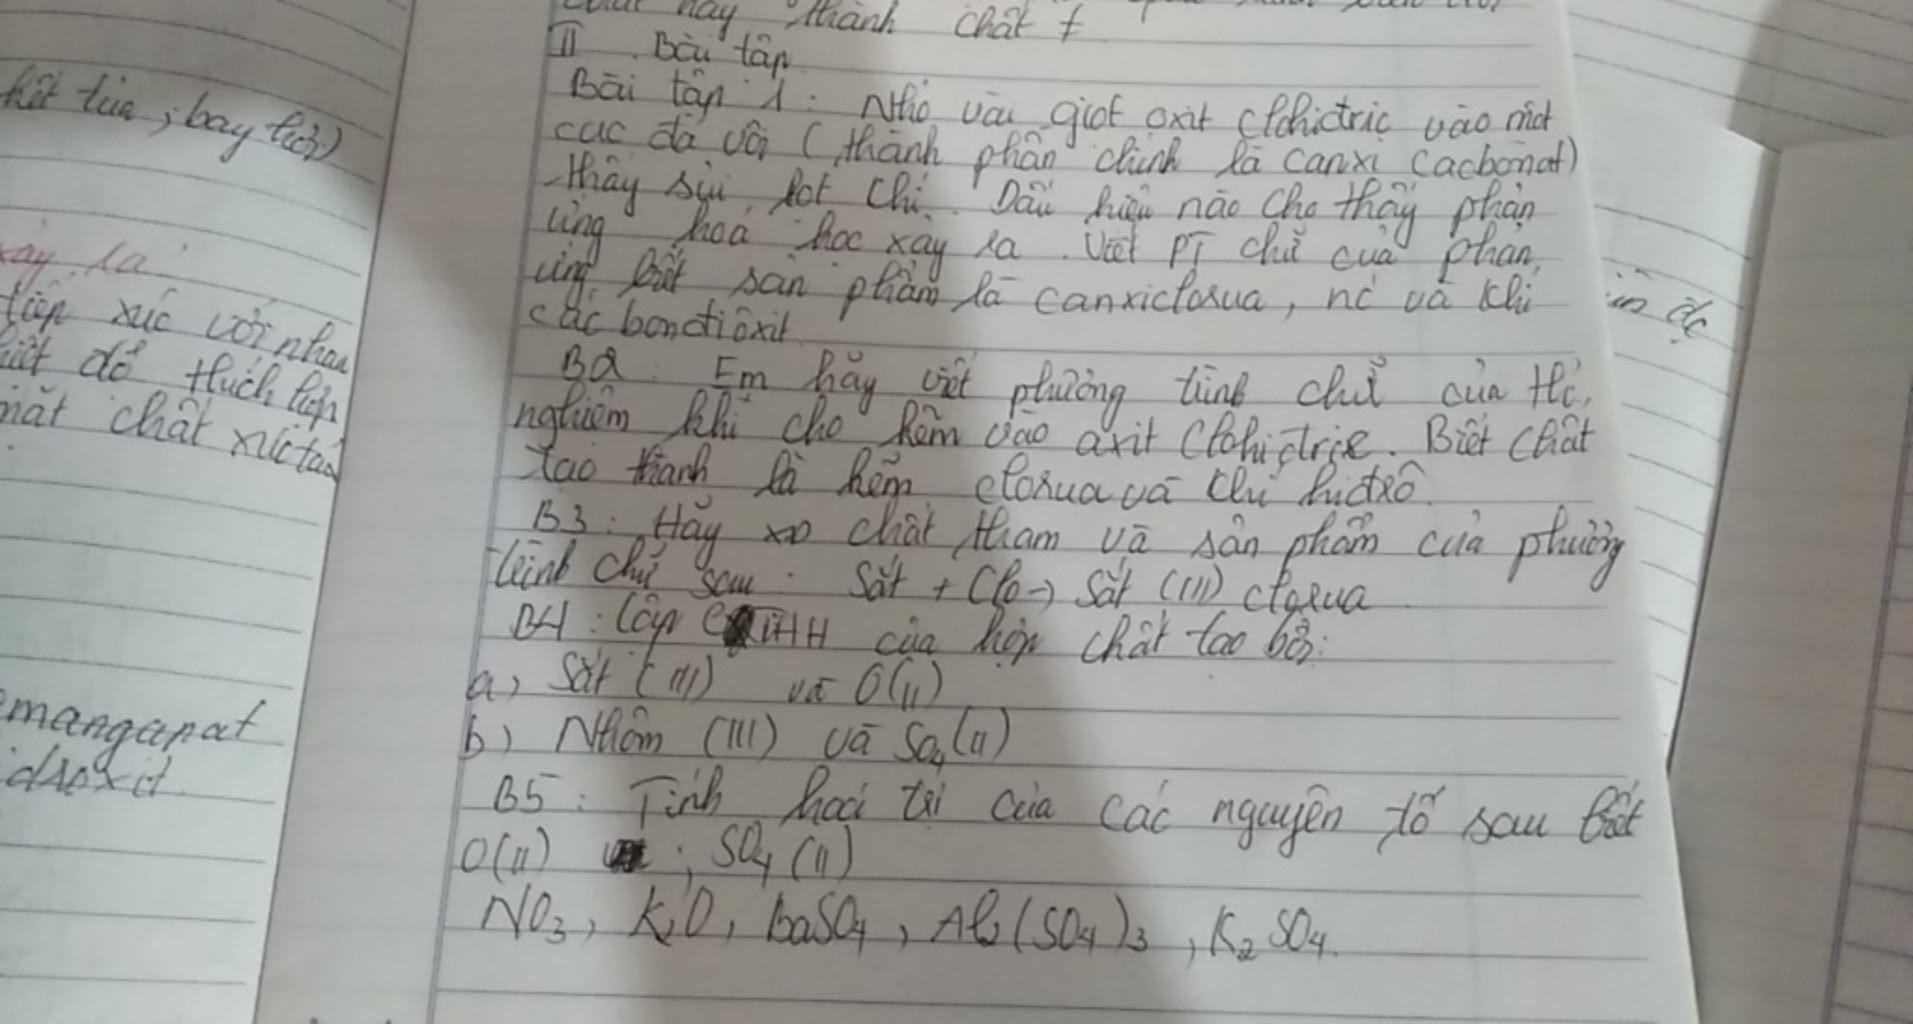 này thành chất ≠
II. Bài tập
Bài tập 1: Nhỏ vài giọt axit clohidric vào một
cục đá vôi (thành phần chính là canxi cacbonat)
thấy sủi bọt khí. Dấu hiệu nào cho thấy phản
ứng hoá học xảy ra. Viết PT chữ của phản
ứng biết sản phẩm là canxiclorua, nc và khí
cacbonđioxit
B2: Em hãy viết phương trình chữ của thí
nghiệm khi cho kẽm vào axit clohiđric. Biết chất
tạo thành là kẽm clorua và khí hiđrô
B3: Hãy xđ chất tham và sản phẩm của phương
trình chữ sau: Sắt + Clo → Sắt (III) clorua
B4: Lập CTHH của hợp chất tạo bởi:
a) Sắt (III) và O(II)
b) Nhôm (III) và SO4(II)
B5: Tính hoá trị của các nguyên tố sau biết
O(II); SO4(II)
NO3, K2O, BaSO4, Al2(SO4)3, K2SO4.
kết tủa, bay hơi)
xảy ra
tiếp xúc với nhau
nhiệt độ thích hợp
mặt chất xúc tác
manganat